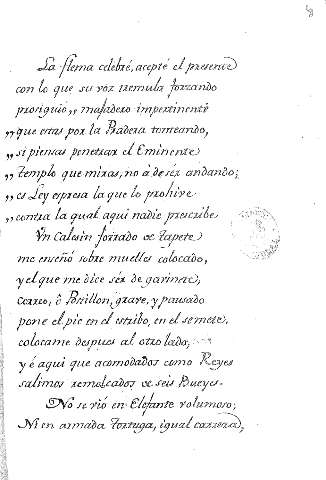 La flema celebré, acepté el presente
con lo que su voz tremula forzando
prosiguio „ majadero impertinente
„ que estas por la Badera torneando,
„ si piensas penetrar el Eminente
„ templo que miras, no á de sér andando;
„ es Ley espresa la que lo prohive
„ contra la qual aqui nadie prescribe
Un Calesin forrado de tapete
me enseñó sobre muelles colocado,
y el que me dice sér de
Correo, ô Postillon, grave, y pausado
pone el pie en el estribo, en el se mete,
colocame despues al otro lado;
y é aqui que acomodados como Reyes
salimos remolcados de seis Bueyes.
No se vió en Elefante volumoso;
Ni en armada Tortuga, igual carrera,